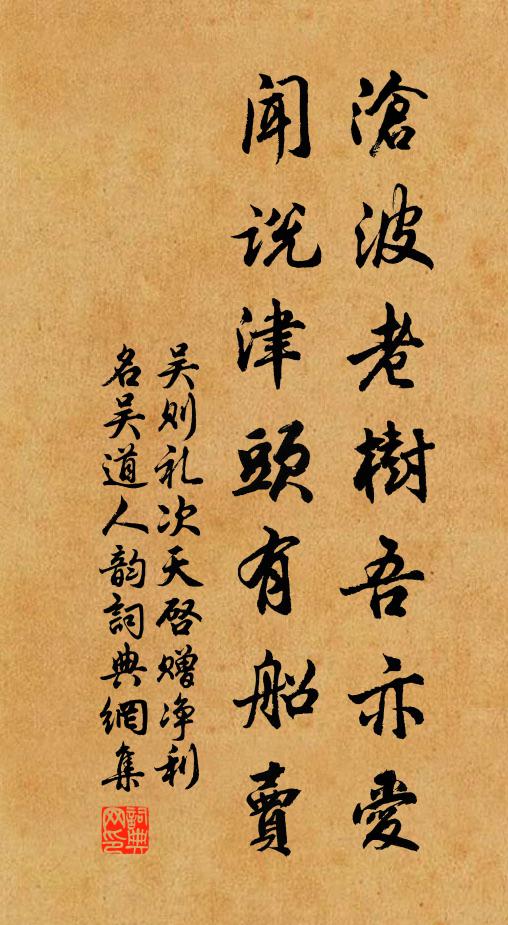 滄波老樹吾亦愛
聞说津頭有船賣
吴则礼次天启赠净利
名吴道人韵詞典網集
詞典网印